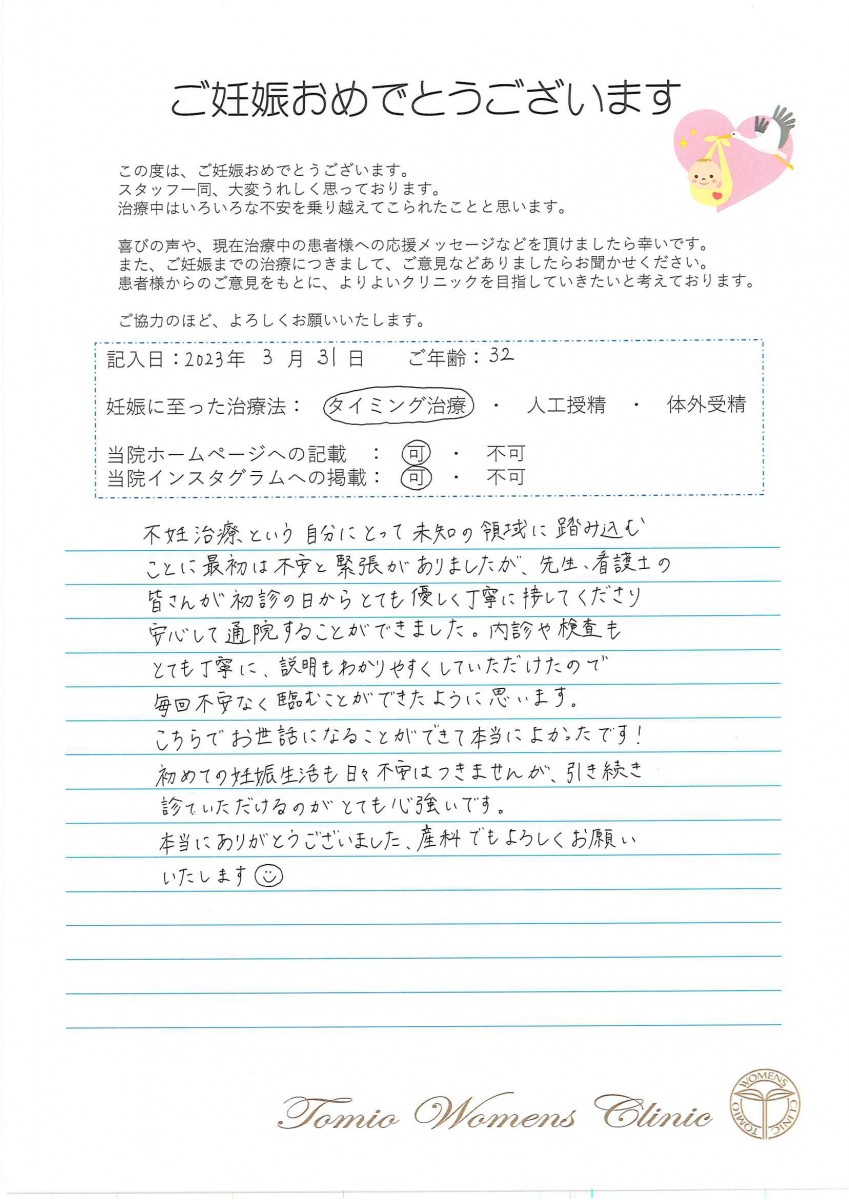 ご妊娠おめでとうございます
この度は、ご妊娠おめでとうございます。
スタッフ一同、大変うれしく思っております。
治療中はいろいろな不安を乗り越えてこられたことと思います。
喜びの声や、現在治療中の患者様への応援メッセージなどを頂けましたら幸いです。
また、ご妊娠までの治療につきまして、ご意見などありましたらお聞かせください。
患者様からのご意見をもとに、よりよいクリニックを目指していきたいと考えております。
ご協力のほど、よろしくお願いいたします。
記入日：2023年 3 月 31 日 ご年齢：32
妊娠に至った治療法： タイミング治療 ・ 人工授精 ・ 体外受精
当院ホームページへの記載 ： 可 ・ 不可
当院インスタグラムへの掲載： 可 ・ 不可
不妊治療という自分にとって未知の領域に踏み込む
ことに最初は不安と緊張がありましたが、先生、看護士の
皆さんが初診の日からとても優しく丁寧に接してくださり
安心して通院することができました。内診や検査も
とても丁寧に、説明もわかりやすくしていただけたので
毎回不安なく臨むことができたように思います。
こちらでお世話になることができて本当によかったです！
初めての妊娠生活も日々不安はつきませんが、引き続き
診ていただけるのがとても心強いです。
本当にありがとうございました、産科でもよろしくお願い
いたします
Tomio Womens Clinic
TOMIO WOMENS CLINIC